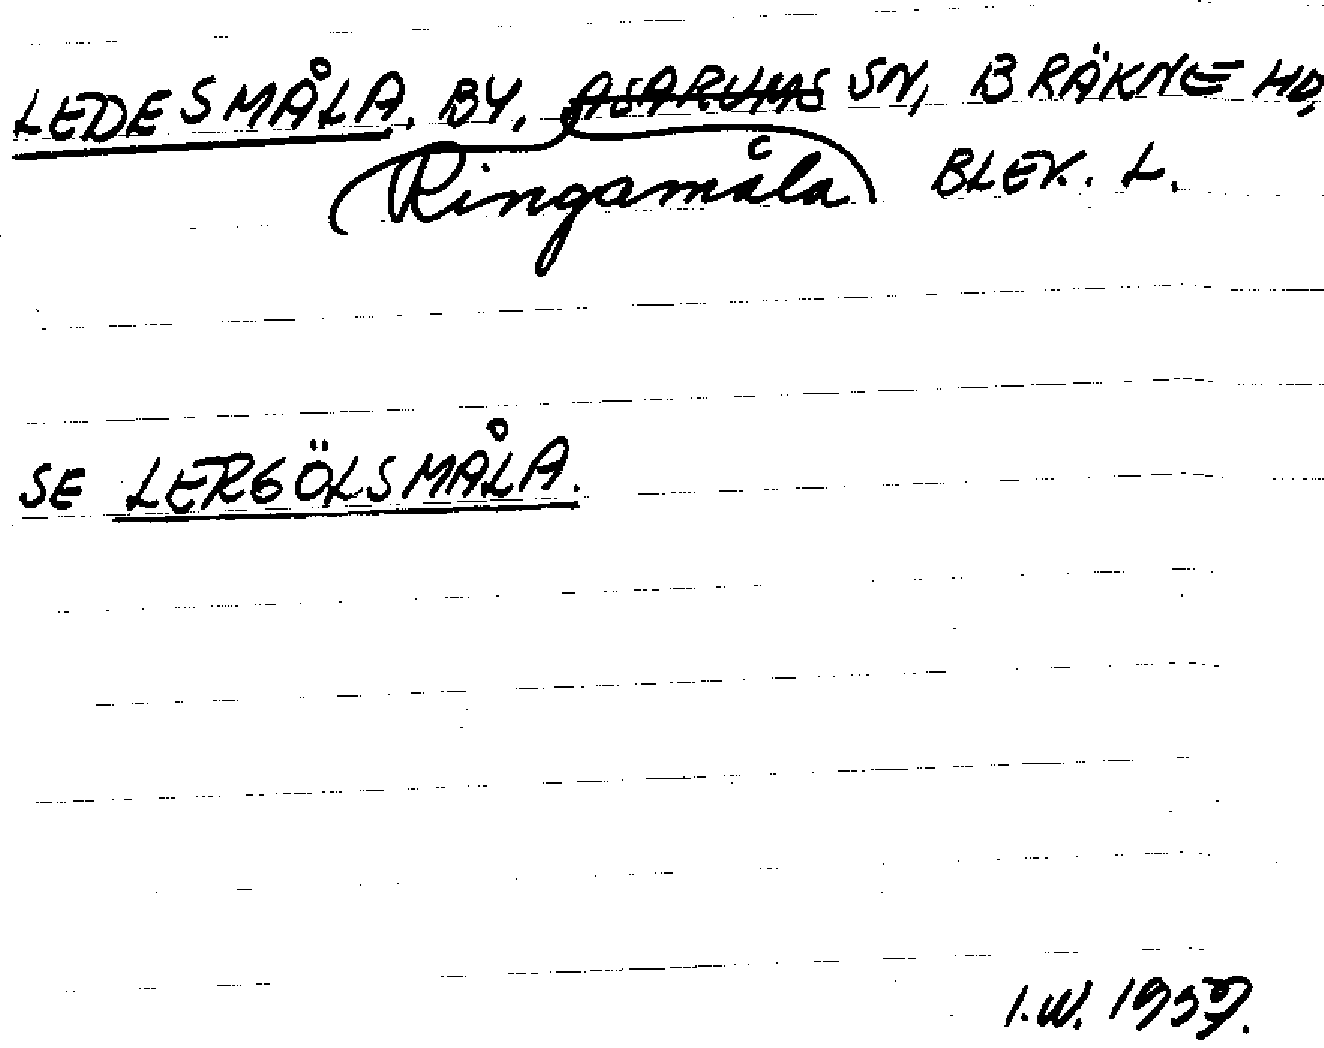 LEDESMÅLA. BY, ASARUMS SN, BRÄKNE HD,
Ringamåla BLEK. L.
SE LERGÖLSMÅLA.
I.W. 1937.